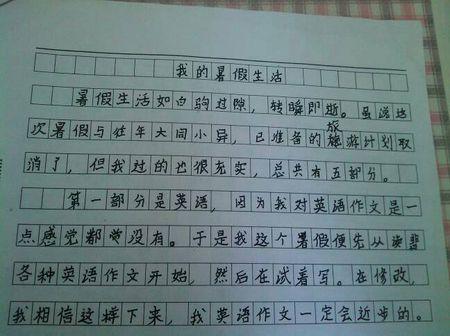 我的暑假生活
暑假生活如白驹过隙，转瞬即逝。虽说这
次暑假与往年大同小异，已准备的旅游计划取
消了，但我过的也很充实，总共有五部分。
第一部分是英语，因为我对英语作文是一
点感觉都没有。于是我这个暑假便先从背
各种英语作文开始，然后在试着写。在修改，
我相信这样下来，我英语作文一定会近步的。